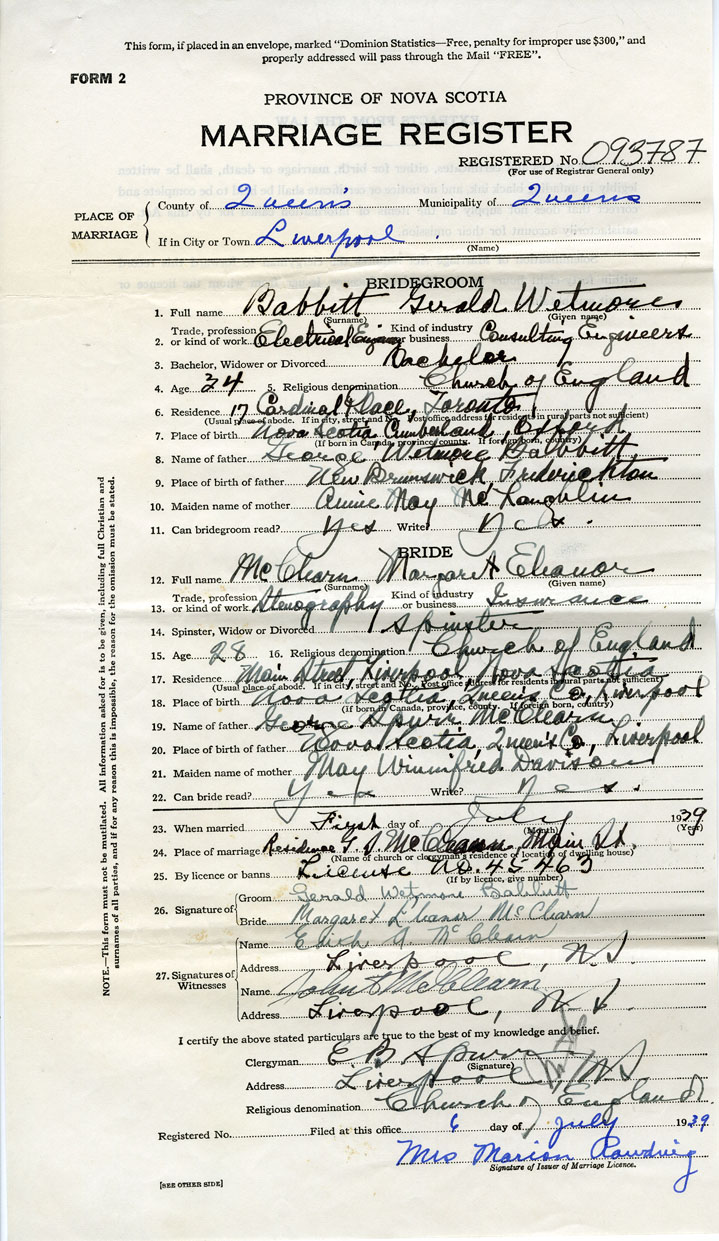 This form, if placed in an envelope, marked "Dominion Statistics—Free, penalty for improper use $300," and
properly addressed will pass through the Mail "FREE".
FORM 2
PROVINCE OF NOVA SCOTIA
MARRIAGE REGISTER
REGISTERED No. 093787
(For use of Registrar General only)
PLACE OF MARRIAGE
County of Queens Municipality of Queens
If in City or Town Liverpool
(Name)
BRIDEGROOM
1. Full name Babbitt Gerald Wetmore
(Surname) (Given name)
2. Trade, profession or kind of work Electrical Kind of industry or business Consulting Engineers
3. Bachelor, Widower or Divorced Bachelor
4. Age 34 5. Religious denomination Church of England
6. Residence 17 Cardinal Place, Toronto
(Usual place of abode. If in city, street and No. Post office address for residents in rural parts not sufficient)
7. Place of birth Nova Scotia, Cumberland, Oxford
(If born in Canada, province, county. If foreign born, country)
8. Name of father George Wetmore Babbitt
9. Place of birth of father New Brunswick, Fredrickton
10. Maiden name of mother Annie May McLaughlin
11. Can bridegroom read? Yes Write? Yes.
BRIDE
12. Full name McClearn Margaret Eleanor
(Surname) (Given name)
13. Trade, profession or kind of work Stenography Kind of industry or business Insurance
14. Spinster, Widow or Divorced Spinster
15. Age 28 16. Religious denomination Church of England
17. Residence Main Street, Liverpool, Nova Scotia
(Usual place of abode. If in city, street and No. Post office address for residents in rural parts not sufficient)
18. Place of birth Nova Scotia, Queens Co, Liverpool
(If born in Canada, province, county. If foreign born, country)
19. Name of father George Spurr McClearn
20. Place of birth of father Nova Scotia, Queen's Co, Liverpool
21. Maiden name of mother May Winnifred Davison
22. Can bride read? Yes Write? Yes.
23. When married First day of July 1939
(Month) (Year)
24. Place of marriage Residence G. S. McClearn Main St.
(Name of church or clergyman's residence or location of dwelling house)
25. By licence or banns License No. 45463
(If by licence, give number)
26. Signature of
Groom Gerald Wetmore Babbitt
Bride Margaret Eleanor McClearn
27. Signatures of Witnesses
Name McClearn
Address Liverpool, N.S.
Name John McClearn
Address Liverpool, N.S.
I certify the above stated particulars are true to the best of my knowledge and belief.
Clergyman E B Spurr
(Signature)
Address Liverpool, N.S
Religious denomination Church of England
Registered No. Filed at this office 6 day of July 1939
Mrs Marion
Signature of Issuer of Marriage Licence.
[SEE OTHER SIDE]
NOTE.—This form must not be mutilated. All information asked for is to be given, including full Christian and
surnames of all parties, and if for any reason this is impossible, the reason for the omission must be stated.